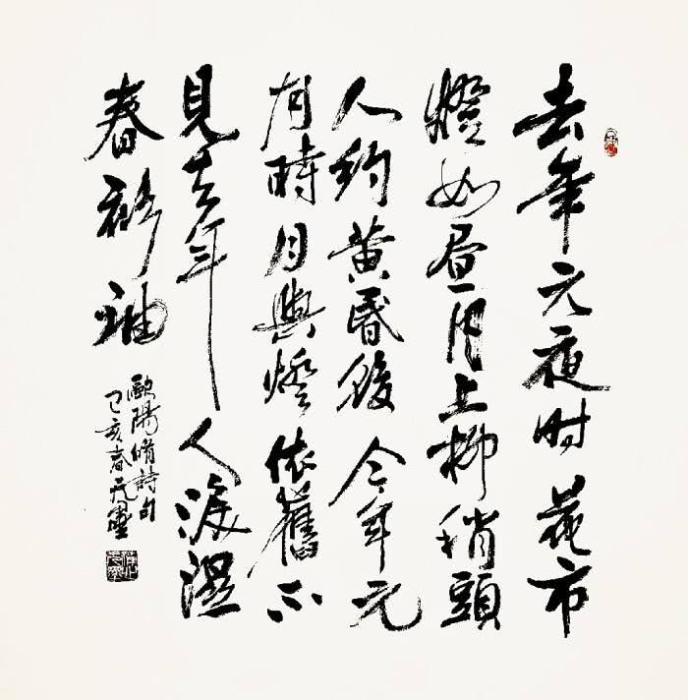 去年元夜时花市
燈如昼月上柳稍頭
人約黄昏後今年元
宵時月與燈依舊不
見去年人淚濕
春衫袖
歐陽脩詩句
己亥春